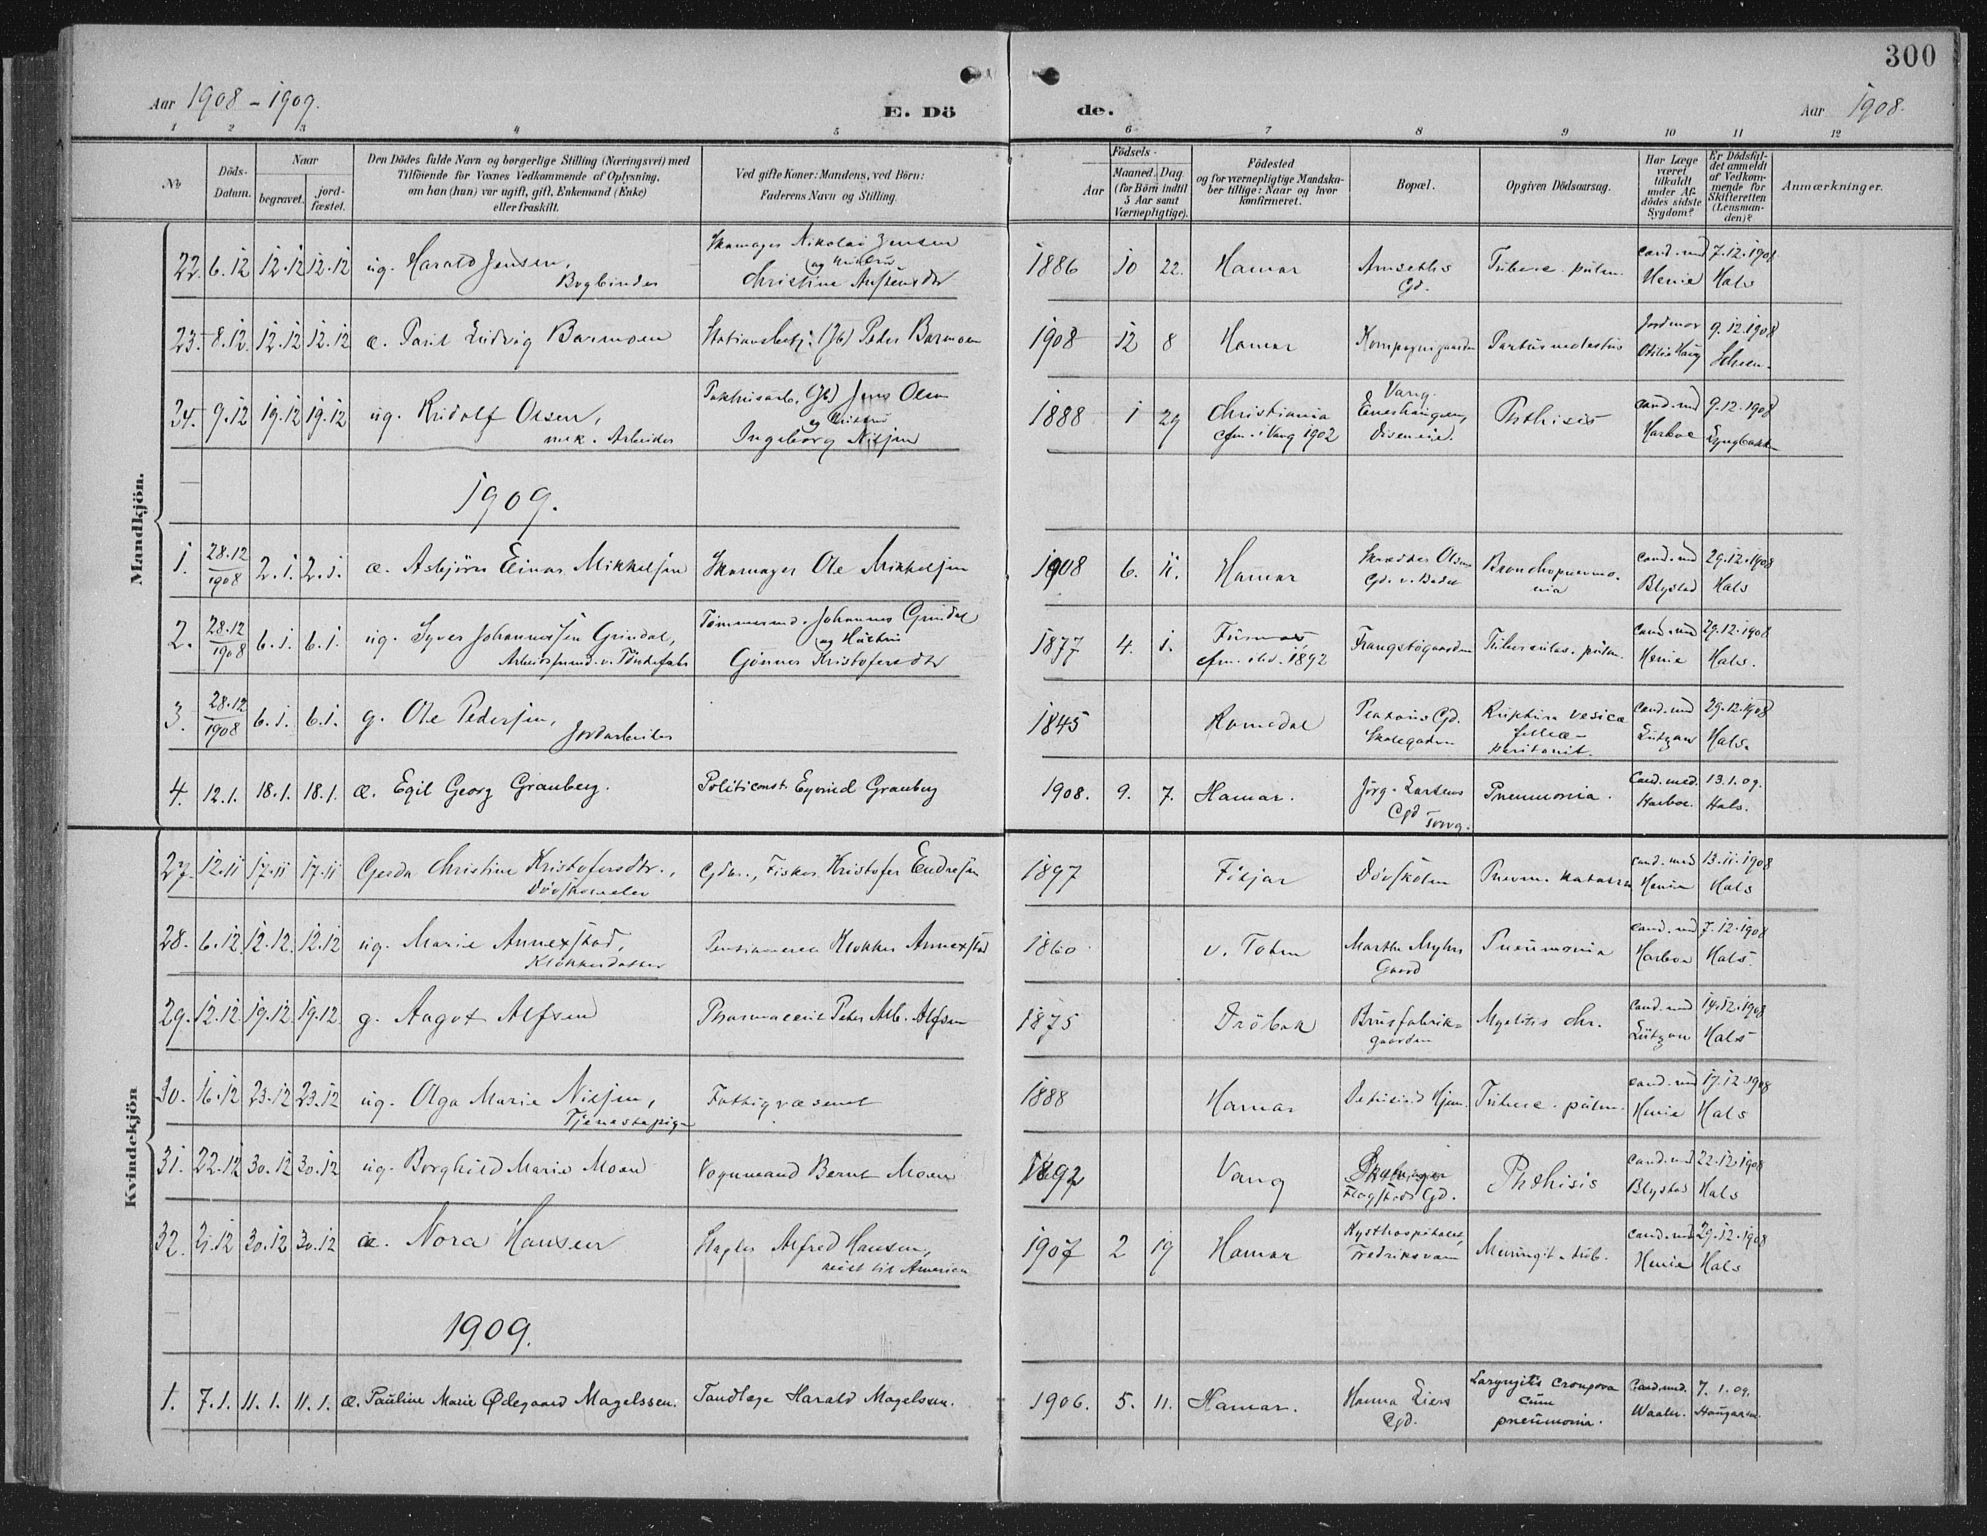 300
Aar 1908 - 1909.
E. Dö de.
Aar 1908.
1 2 3 4 5 6 7 8 9 10 11 12
No
Döds-Datum.
Naar
begravet.
jord-fæstet.
Den Dödes fulde Navn og borgerlige Stilling (Næringsvei) med
Tilföiende for Voxnes Vedkommende af Oplysning,
om han (hun) var ugift, gift, Enkemand (Enke)
eller fraskilt.
Ved gifte Koner: Mandens, ved Börn:
Faderens Navn og Stilling.
Födsels-
Aar
Maaned. Dag
(for Börn indtil
5 Aar samt
Værnepligtige).
Födested
og for værnepligtige Mandska-
ber tillige: Naar og hvor
konfirmeret.
Bopæl.
Opgiven Dödsaarsag.
Har Læge
været
tilkaldt
under Af-
dödes sidste
Sygdom?
Er Dödsfal-
det anmeldt
af Vedkom-
mende for
Skifteretten
(Lensman-
den)?
Anmærkninger.
Mandkjön.
22. 6.12 12.12 12.12 ug. Harald Jensen, Bogbinder
Skomager Nikolai Jensen og Hustru Christine
1886 10 22. Hamar Gd. Tuberc. pulm. cand. med Henie 7.12.1908 Hals
23. 8.12. 12.12 12.12 æ. Paul Ludvig Barmoen
Peder Barmoen
1908 12 8 Hamar Kompagnigaarden Partus molestus Jordmor Otilie Haug 9.12.1908
24. 9.12 19.12 19.12 ug. Rudolf Olsen, mek. Arbeider
Pakhusarb. (Jb) Jens Olsen og Hustru Ingeborg Nilsen
1888 1 29 Christiania cfm. i Vang 1902 Vang Phthisis cand. med Harboe 9.12.1908
1909.
1. 28.12/1908 2.1. 2.1. æ. Asbjörn Einar Mikkelsen
Skomager Ole Mikkelsen
1908 6. 11. Hamar Skrædder Olsens Gd. v. Badet Bronchopneumo-nia cand. med Blystad 29.12.1908 Hals
2. 28.12/1908 6.1. 6.1. ug. Syver Johannessen Grindal, Arbeidsmand v. Töndefabr.
Tömmermd. Johannes Grindal og Hustru Kristofersdtr
1877 4. 1. Furnes, cfm. ibd. 1892 Frangstögaarden Tuberculos. pulm. cand. med Henie 29.12.1908 Hals.
3. 28.12/1908 6.1. 6.1. g. Ole Pedersen, Jordarbeider
1845 Romedal Gd. Skolegaden Ruptura vesicæ felleæ - peritonit. cand. med Lützow 29.12.1908 Hals.
4. 12.1. 18.1. 18.1. æ. Egil Georg Granberg.
Politiconst. Eyvind Granberg
1908. 9. 7. Hamar. Jörg. Larsens Gd Torvg. Pneumonia. Cand. med. Harboe. 13.1.09. Hals.
Kvindekjön
27. 12.11 17.11 17.11 Gerda Christine Kristofersdtr., Dövskoleelev
Gdbr., Fisker Kristofer Endresen
1897 Fitjar Dövskolen Pneum. katarrh cand. med Henie 13.11.1908 Hals
28. 6.12 12.12. 12.12 ug. Marie Annexstad, Klokkerdatter
Pensioneret Klokker Annexstad
1860 v. Toten Marthe Myhrs Gaard Pneumonia cand. med Harboe 7.12.1908 Hals.
29. 12.12 19.12. 19.12. g. Aagot Alfsen
Pharmaceut Peter Alb. Alfsen
1875 Dröbak Brusfabrik-gaarden Myelitis chr. cand. med Lützow 14.12.1908 Hals
30. 16.12 23.12 23.12 ug. Olga Marie Nilsen, Tjenestepige
Fattigvæsenet
1888 Hamar Tuberc. pulm. cand. med Henie 17.12.1908 Hals
31. 22.12 30.12 30.12 ug. Borghild Marie Moen
Vognmand Bernt Moen
1892 Vang Flagstads Gd. Phthisis cand. med Blystad 22.12.1908 Hals
32. 21.12 30.12 30.12 æ. Nora Hansen
Slagter Alfred Hansen, reist til Amerika
1907 2 19 Hamar Kysthospitalet, Fredriksværn Meningit. tub. cand. med Henie 29.12.1908 Hals
1909.
1. 7.1. 11.1. 11.1. æ. Pauline Marie Ødegaard Magelssen.
Tandlæge Harald Magelssen.
1906. 5. 11. Hamar. Hanna Liers Gd. Laryngitis crouposa cum pneumonia. Cand. med. Waaler. 7.1.09.